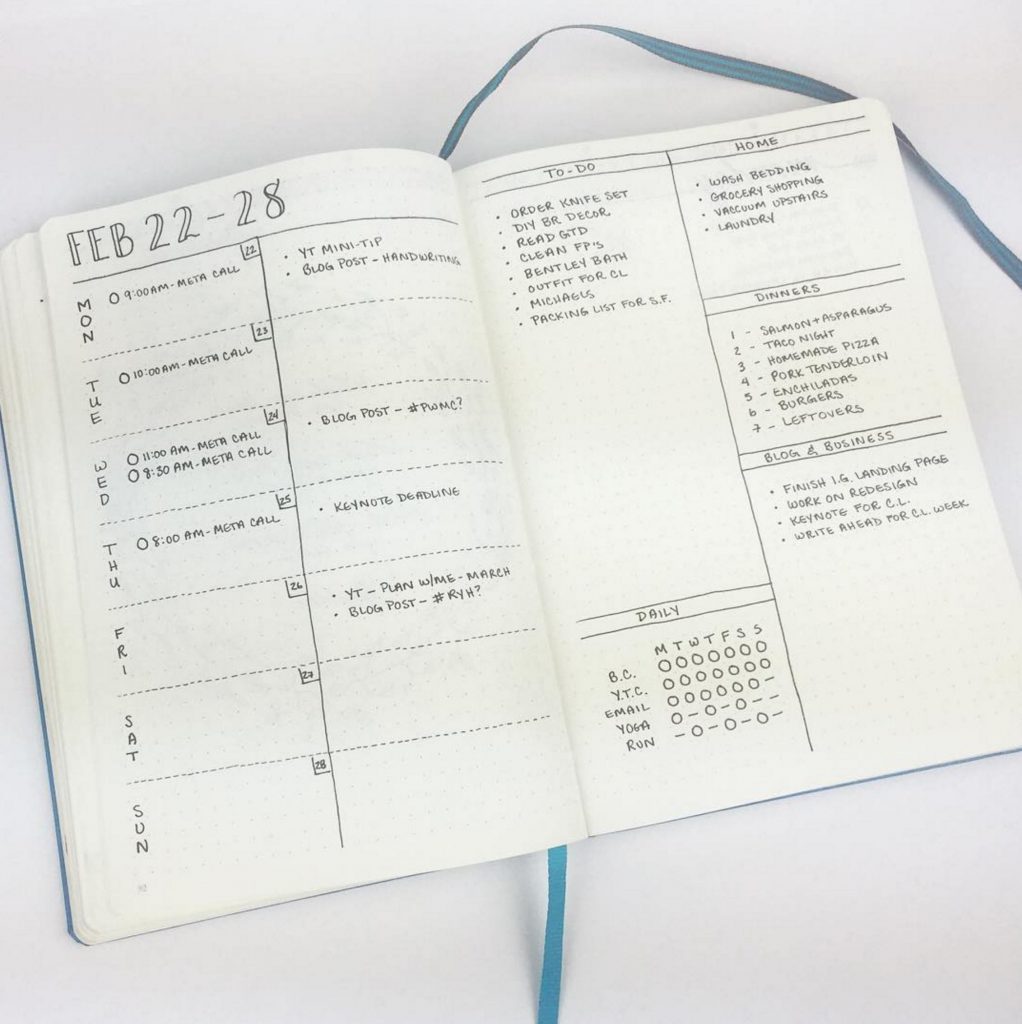 FEB 22-28
MON
22
9:00AM-META CALL
• YT MINI-TIP
• BLOG POST - HANDWRITING
TUE
23
10:00AM-META CALL
WED
24
11:00 AM-META CALL
8:30 AM-META CALL
• BLOG POST - #PWMC?
THU
25
8:00 AM-META CALL
• KEYNOTE DEADLINE
FRI
26
• YT - PLAN W/ME - MARCH
• BLOG POST - #RYH?
SAT
27
SUN
28
TO-DO
• ORDER KNIFE SET
• DIY BR DECOR
• READ GTD
• CLEAN FP'S
• BENTLEY BATH
• OUTFIT FOR CL
• MICHAELS
• PACKING LIST FOR S.F.
DAILY
M T W T F S S
B.C. O O O O O O O
Y.T.C. O O O O O O O
EMAIL O O O O O O -
YOGA O - O - O - -
RUN - O - O - O -
HOME
• WASH BEDDING
• GROCERY SHOPPING
• VACCUUM UPSTAIRS
• LAUNDRY
DINNERS
1 - SALMON+ASPARAGUS
2 - TACO NIGHT
3 - HOMEMADE PIZZA
4 - PORK TENDERLOIN
5 - ENCHILADAS
6 - BURGERS
7 - LEFTOVERS
BLOG & BUSINESS
• FINISH I.G. LANDING PAGE
• WORK ON REDESIGN
• KEYNOTE FOR C.L.
• WRITE AHEAD FOR C.L. WEEK